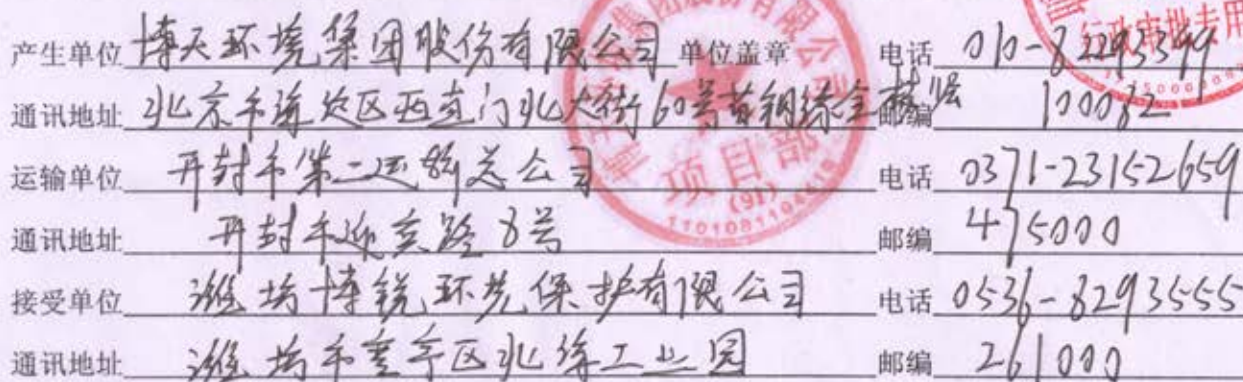 产生单位 博天环境集团股份有限公司 单位盖章 电话 010-82293399
通讯地址 北京市海淀区西直门北大街60号首钢综合楼 邮编 100082
运输单位 开封市第二运输总公司 电话 0371-23152659
通讯地址 开封市迎宾路8号 邮编 475000
接受单位 潍坊博锐环境保护有限公司 电话 0536-8293555
通讯地址 潍坊市奎亭区北 工业园 邮编 261000
集团股份有限公司
项目部
(91)
行政审批专用